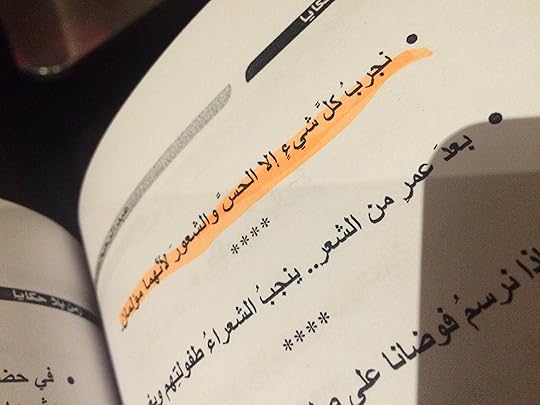 حكايا
• نجربُ كلَّ شيءٍ إلا الحسَّ والشعورَ لأنّهما مؤلمان.
****
• بعدَ عمرٍ من الشعر.. ينجبُ الشعراءُ طفولتهم
****
نرسمُ فوضانا على
زمن بلا حكايا
• في